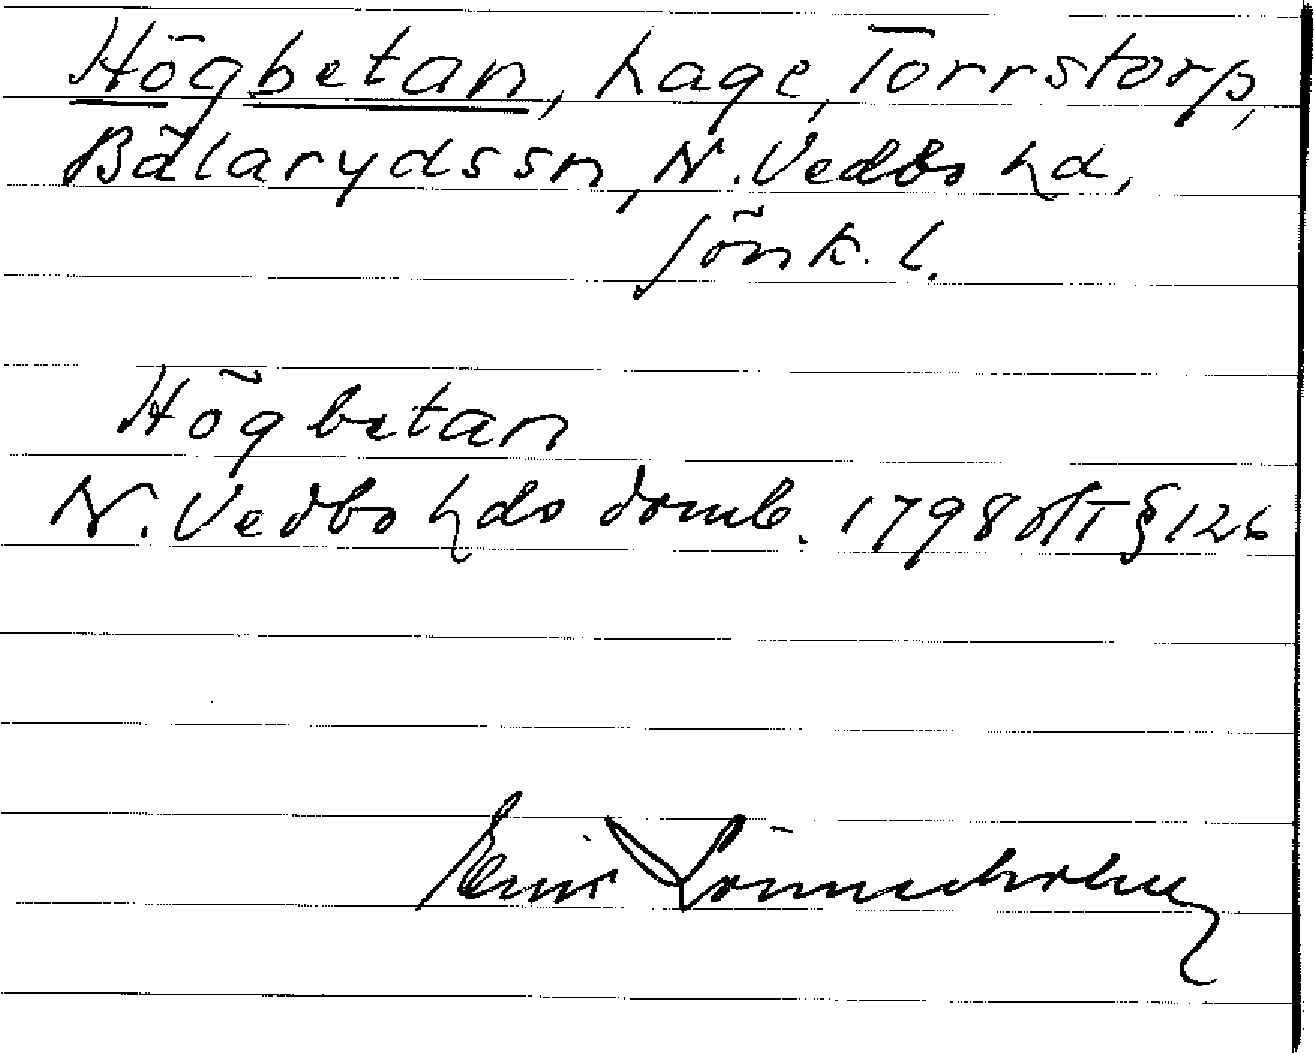 Högbetan, hage, Torrstorp,
Bälaryds sn, N. Vedbo hd,
Jönk. l.
Högbetan
N. Vedbo hds domb. 1798 § 126